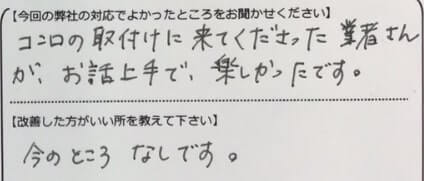 【今回の弊社の対応でよかったところをお聞かせください】
コンロの取付けに来てくださった業者さん
が、お話上手で、楽しかったです。
【改善した方がいい所を教えて下さい】
今のところ なしです。